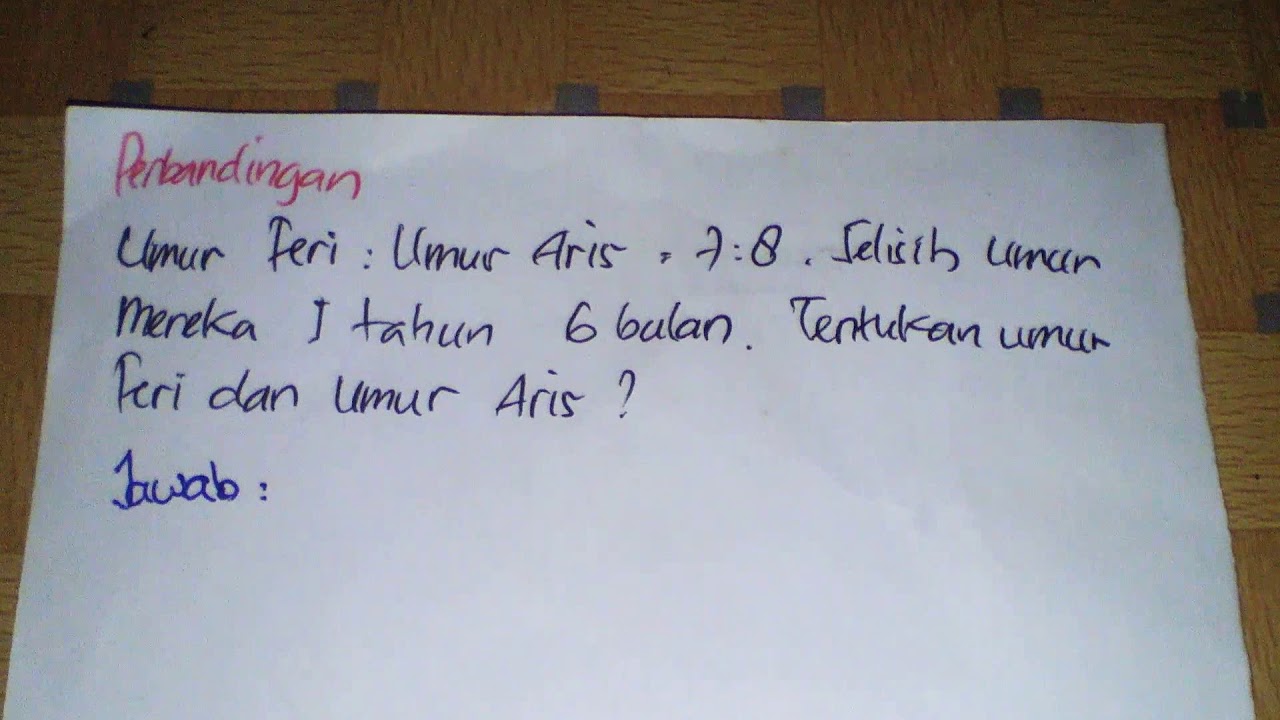 Perbandingan
Umur Feri : Umur Aris = 7 : 8 . Selisih umur
mereka 1 tahun 6 bulan. Tentukan umur
Feri dan Umur Aris ?
Jawab :